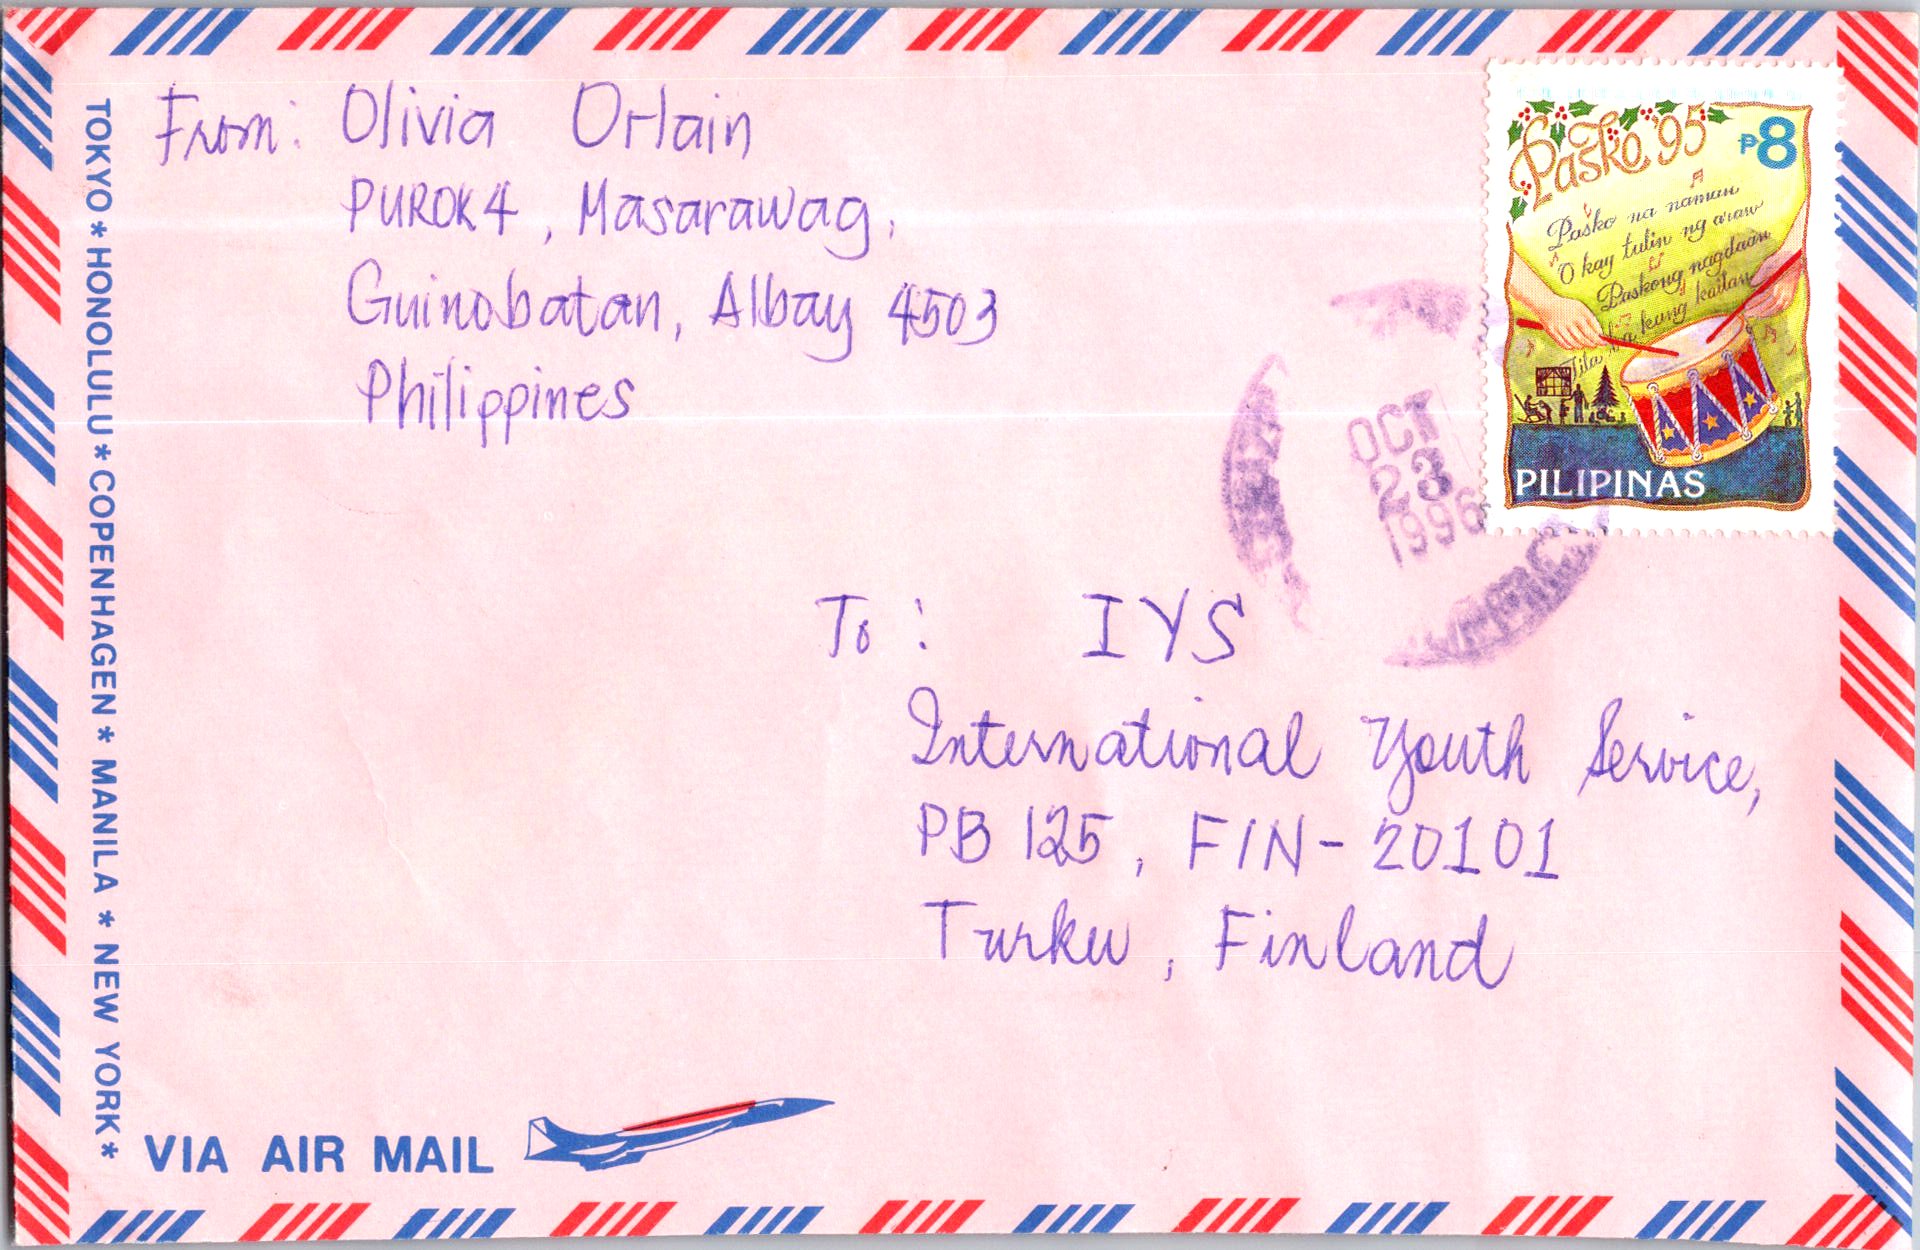 From: Olivia Orlain
PUROK 4, Masarawag,
Guinobatan, Albay 4503
Philippines
Pasko '95
₱8
Pasko na naman
O kay tulin ng araw
Paskong nagdaan
Tila ba kung kailan
PILIPINAS
OCT
23
1996
To: IYS
International Youth Service,
PB 125, FIN-20101
Turku, Finland
TOKYO * HONOLULU * COPENHAGEN * MANILA * NEW YORK *
VIA AIR MAIL